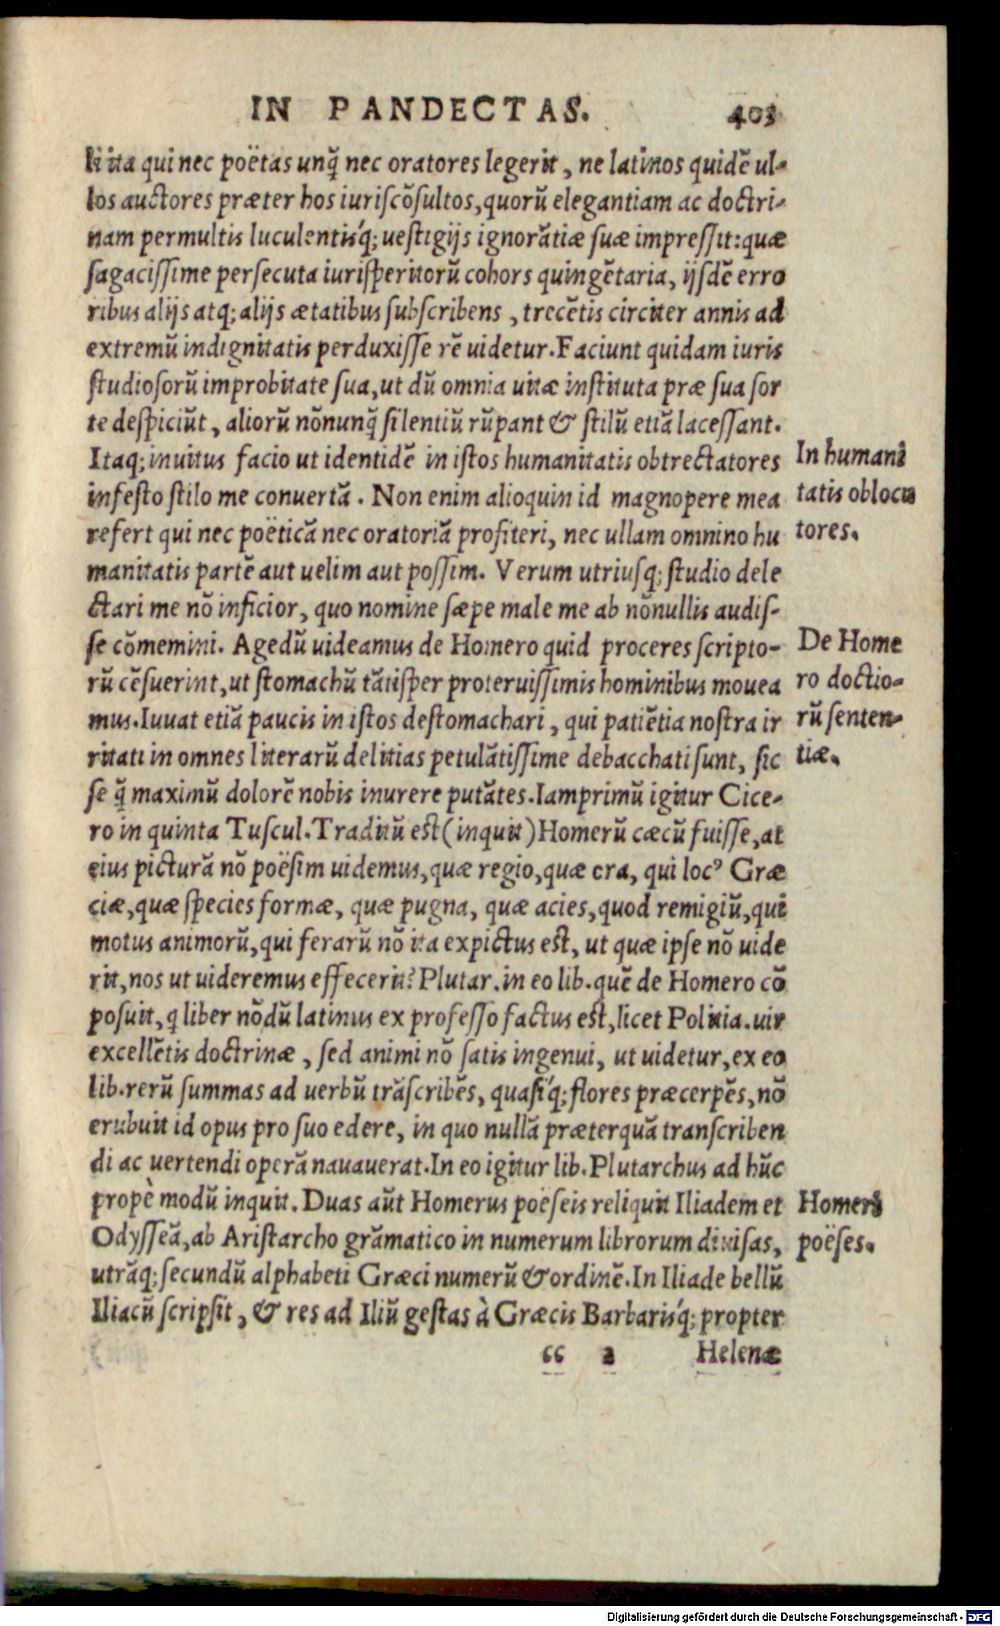 IN PANDECTAS. 403
li ita qui nec poëtas unq̃ nec oratores legerit, ne latinos quidẽ ul-
los auctores præter hos iuriscõsultos, quorũ elegantiam ac doctri-
nam permultis luculentisq́; uestigijs ignorãtiæ suæ impressit: quæ
sagacissime persecuta iurisperitorũ cohors quingẽtaria, ijsdẽ erro
ribus alijs atq; alijs ætatibus subscribens, trecẽtis circiter annis ad
extremũ indignitatis perduxisse rẽ uidetur. Faciunt quidam iuris
studiosorũ improbitate sua, ut dũ omnia uitæ instituta præ sua sor
te despiciũt, aliorũ nõnunq̃ silentiũ rũpant & stilũ etiã lacessant.
Itaq; inuitus facio ut identidẽ in istos humanitatis obtrectatores
infesto stilo me conuertã. Non enim alioquin id magnopere mea
refert qui nec poëticã nec oratoriã profiteri, nec ullam omnino hu
manitatis partẽ aut uelim aut possim. Verum utriusq; studio dele
ctari me nõ inficior, quo nomine sæpe male me ab nõnullis audis-
se cõmemini. Agedũ uideamus de Homero quid proceres scripto-
rũ cẽsuerint, ut stomachũ tãtisper proteruissimis hominibus mouea
mus. Iuuat etiã paucis in istos destomachari, qui patiẽtia nostra ir
ritati in omnes literarũ delitias petulãtissime debacchati sunt, sic
se q̃ maximũ dolorẽ nobis inurere putãtes. Iamprimũ igitur Cice-
ro in quinta Tuscul. Traditũ est (inquit) Homerũ cæcũ fuisse, at
eius picturã nõ poësim uidemus, quæ regio, quæ ora, qui locꝰ Græ
ciæ, quæ species formæ, quæ pugna, quæ acies, quod remigiũ, qui
motus animorũ, qui ferarũ nõ ita expictus est, ut quæ ipse nõ uide
rit, nos ut uideremus effecerit? Plutar. in eo lib. quẽ de Homero cõ
posuit, q liber nõdũ latinus ex professo factus est, licet Politia. uir
excellẽtis doctrinæ, sed animi nõ satis ingenui, ut uidetur, ex eo
lib. rerũ summas ad uerbũ trãscribẽs, quasiq́; flores præcerpẽs, nõ
erubuit id opus pro suo edere, in quo nullã præterquã transcriben
di ac uertendi operã nauauerat. In eo igitur lib. Plutarchus ad hũc
propè modũ inquit. Duas aũt Homerus poëseis reliquit Iliadem et
Odysseã, ab Aristarcho grãmatico in numerum librorum diuisas,
utrãq; secundũ alphabeti Græci numerũ & ordinẽ. In Iliade bellũ
Iliacũ scripsit, & res ad Iliũ gestas à Græcis Barbarisq́; propter
cc 2 Helenæ
In humani
tatis oblocu
tores.
De Home
ro doctio-
rũ senten-
tiæ.
Homeri
poëses.
Digitalisierung gefördert durch die Deutsche Forschungsgemeinschaft - DFG